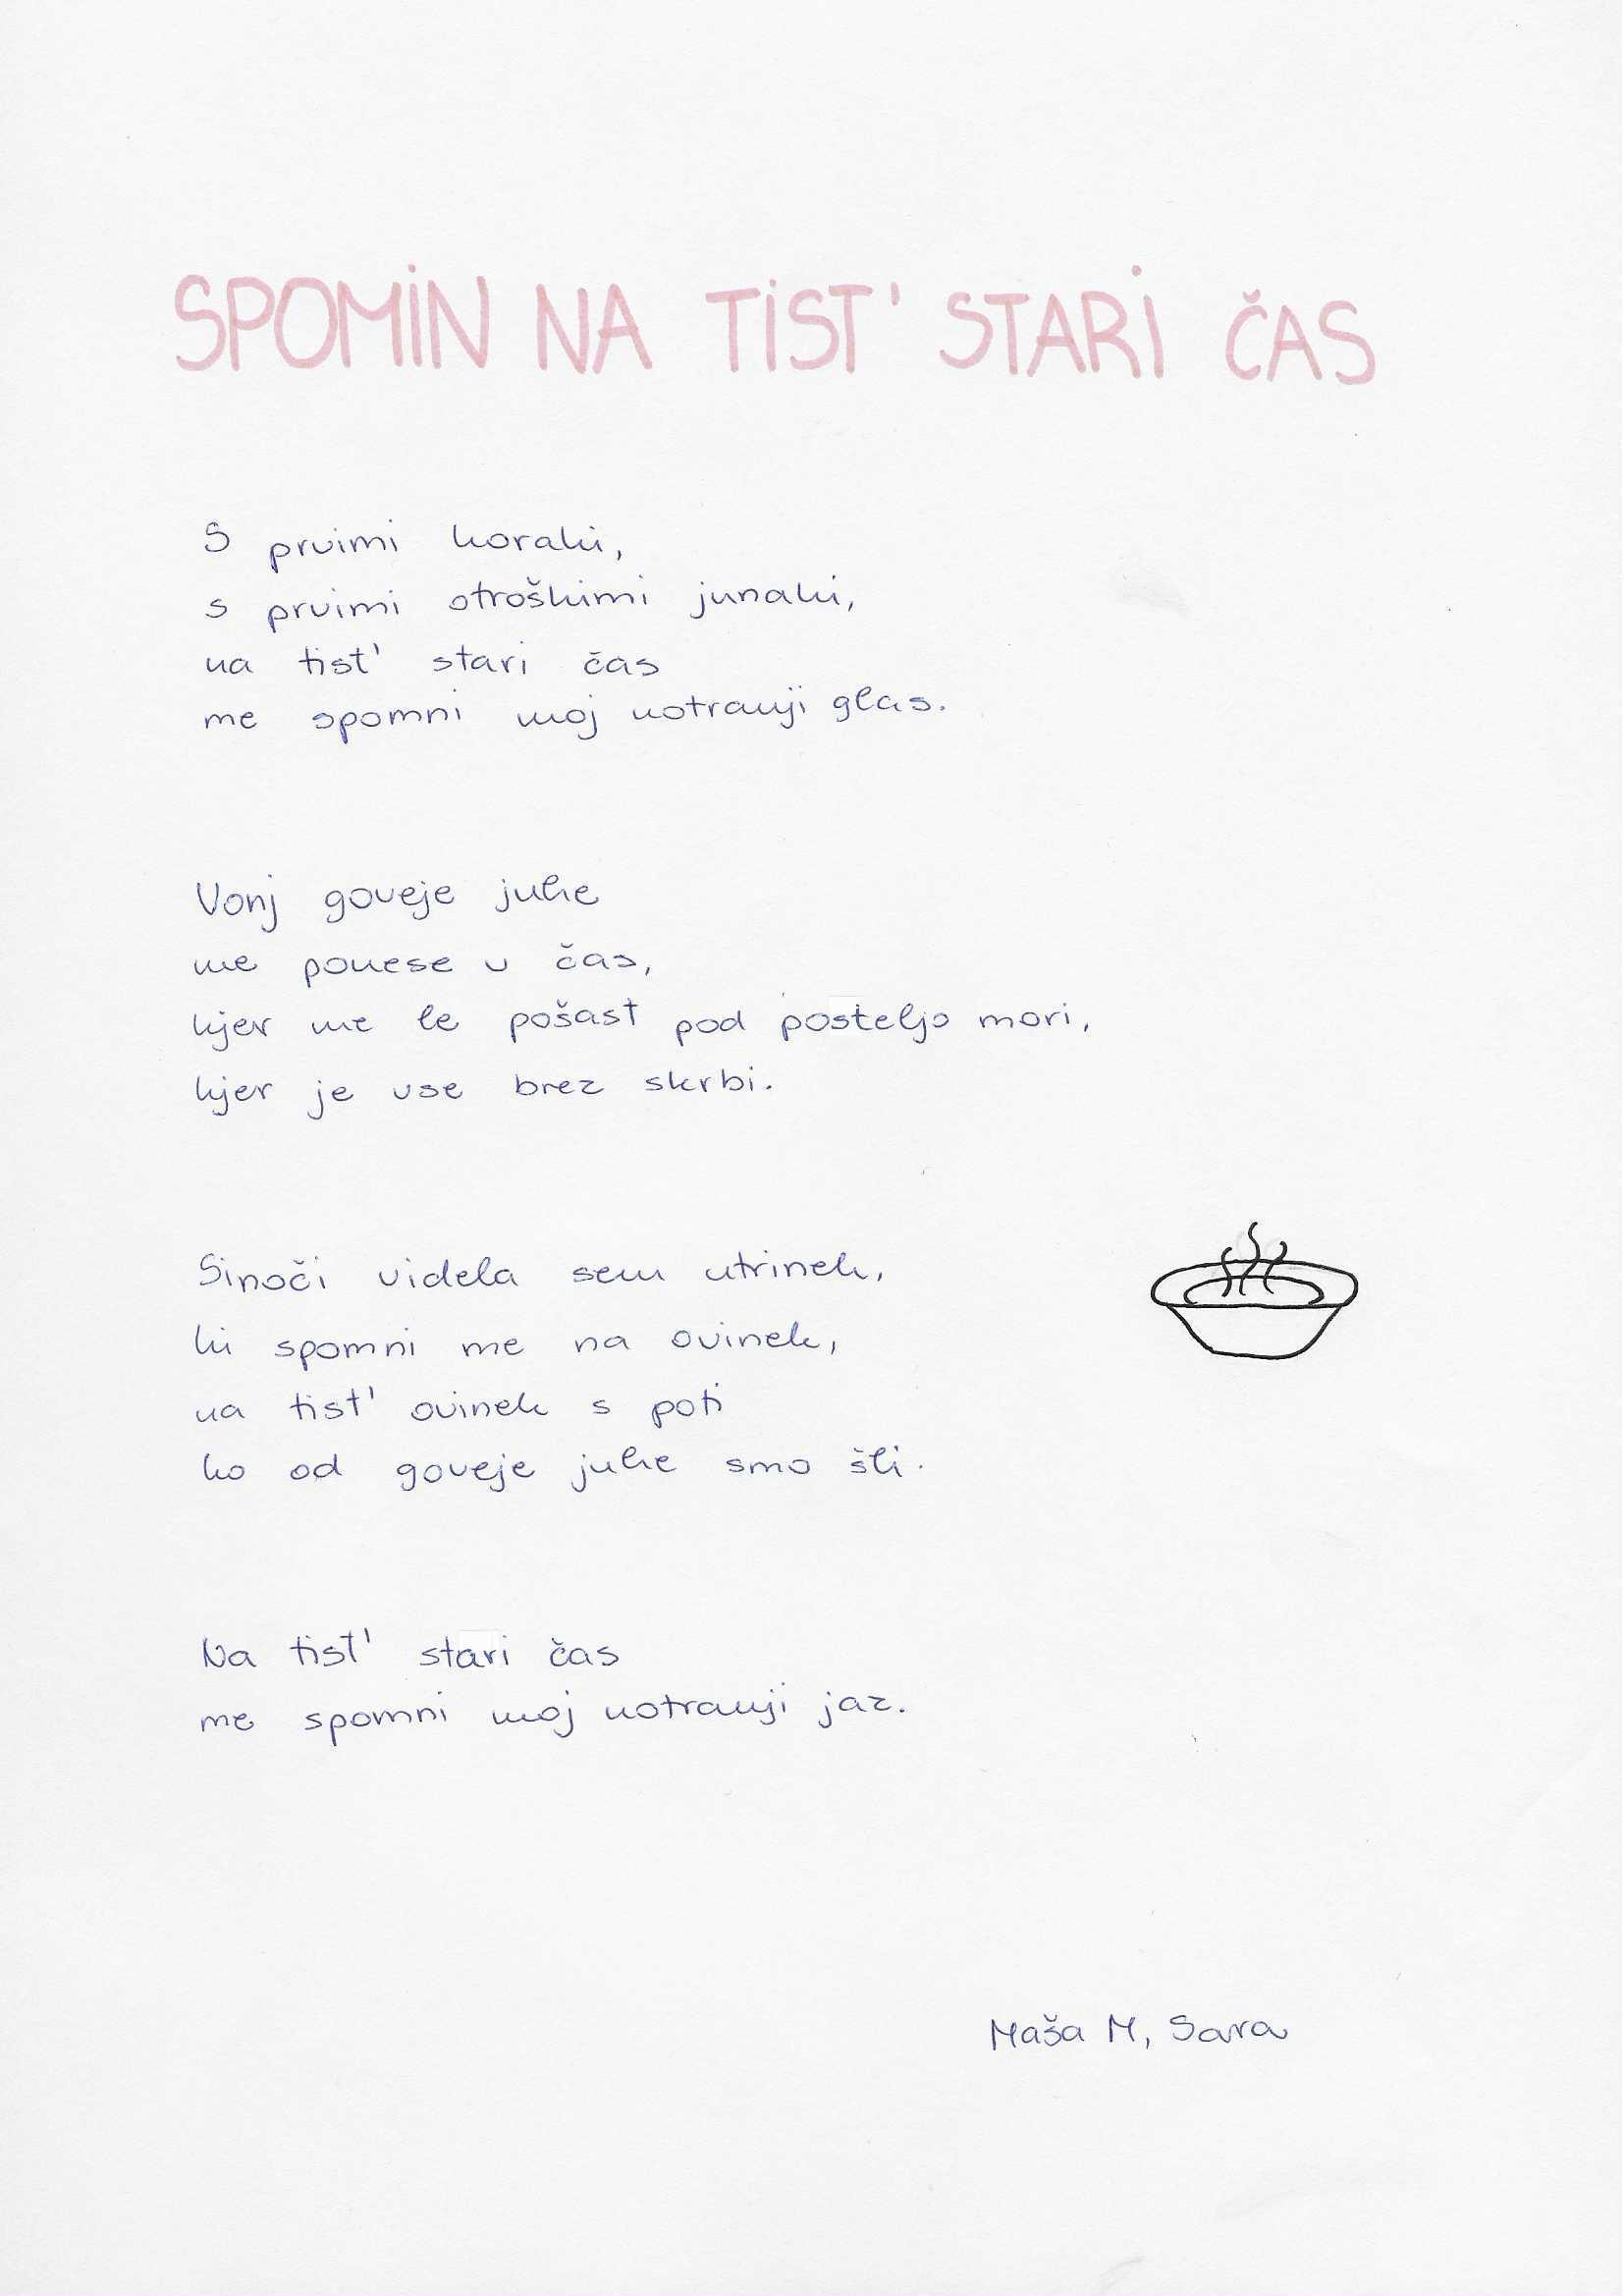 SPOMIN NA TIST' STARI ČAS
S prvimi koraki,
s prvimi otroškimi junaki,
na tist' stari čas
me spomni moj notranji glas.
Vonj goveje juhe
me ponese v čas,
kjer me le pošast pod posteljo mori,
kjer je vse brez skrbi.
Sinoči videla sem utrinek,
ki spomni me na ovinek,
na tist' ovinek s poti
ko od goveje juhe smo šli.
Na tist' stari čas
me spomni moj notranji jaz.
Maša M, Sara